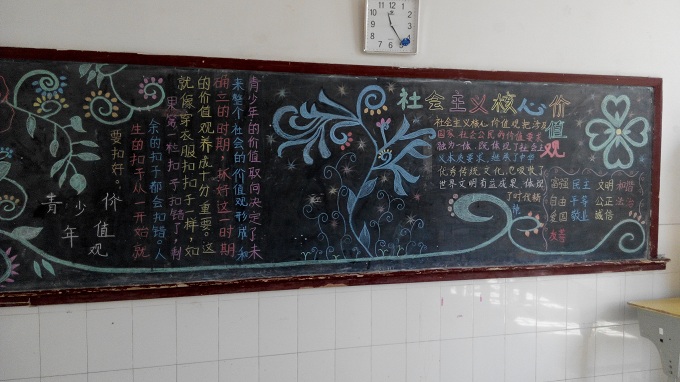 社会主义核心价值观
社会主义核心价值观把涉及
国家、社会、公民的价值要求
融为一体，既体现了社会主
义本质要求，继承了中华
优秀传统文化，也吸收了
世界文明有益成果，体现
了时代精
神
富强 民主 文明 和谐
自由 平等 公正 法治
爱国 敬业 诚信
友善
青少年的价值取向决定了未
来整个社会的价值观形成和
确立的时期，抓好这一时期
的价值观养成十分重要。这
就像穿衣服扣扣子一样，如
果第一粒扣子扣错了，剩
余的扣子都会扣错。人
生的扣子从一开始就
要扣好。
青少年
价值观